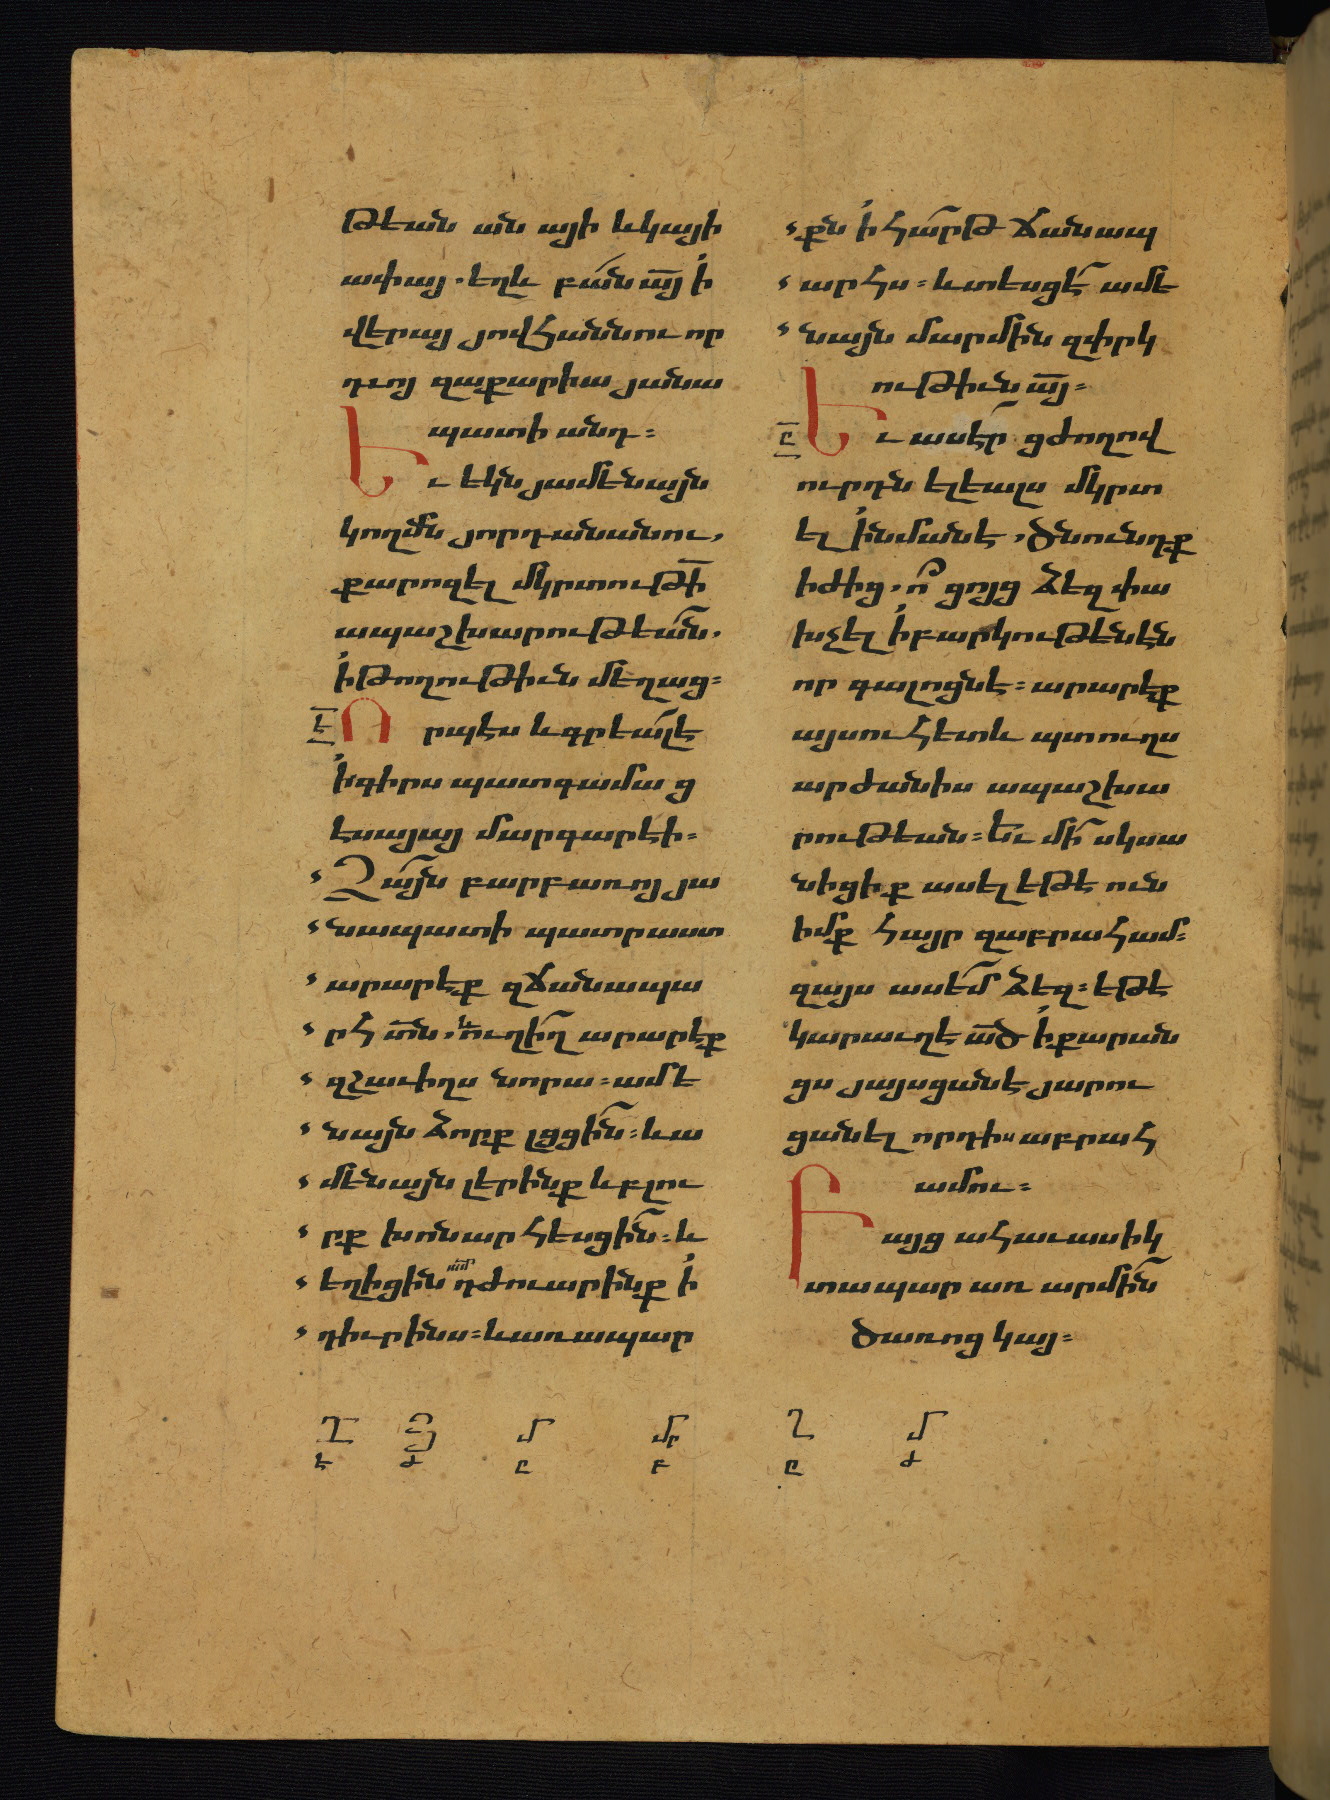 թեան ան այի ևկայի
ափայ. եղև բան այ ի
վերայ յովհաննու որ
դւոյ զաքարիա յանա
պատի անդ։
Եւ եկն յամենայն
կողմն յորդանանու,
քարոզել մկրտութի
ապաշխարութեան.
ի թողութիւն մեղաց։
է Որպէս և գրեալ է
ի գիրս պատգամա ց
էսայայ մարգարէի։
Ձայն բարբառոյ յա
նապատի պատրաստ
արարէք զճանապա
րհ տն. և ուղիղ արարէք
զշաւիղս նորա։ ամե
նայն ձորք լցցին։ և ա
մենայն լերինք և բլու
րք խոնարհեսցին։ և
եղիցին ամ դժուարինք ի
դիւրինս։ և առապար
քն ի հարթ ճանապ
արհս։ և տեսցէ ամե
նայն մարմին զփրկ
ութիւն այ։
ը Եւ ասէր ցժողով
ուրդն ելեալս մկրտ
ել ի նմանէ, ծնունդք
իժից. ո՞ ցոյց ձեզ փա
խչել ի բարկութենէն
որ գալոցնէ։ արարէք
այսուհետև պտուղս
արժանիս ապաշխա
րութեան։ Եւ մի սկսա
նիցիք ասել եթէ ուն
իմք հայր զաբրահամ։
զայս ասեմ ձեզ։ եթէ
կարաւղ է ած ի քարան
ցս յայսցանէ յարու
ցանել որդիս աբրահ
ամու։
Բայց ահաւասիկ
տապար առ արմին
ծառոց կայ։